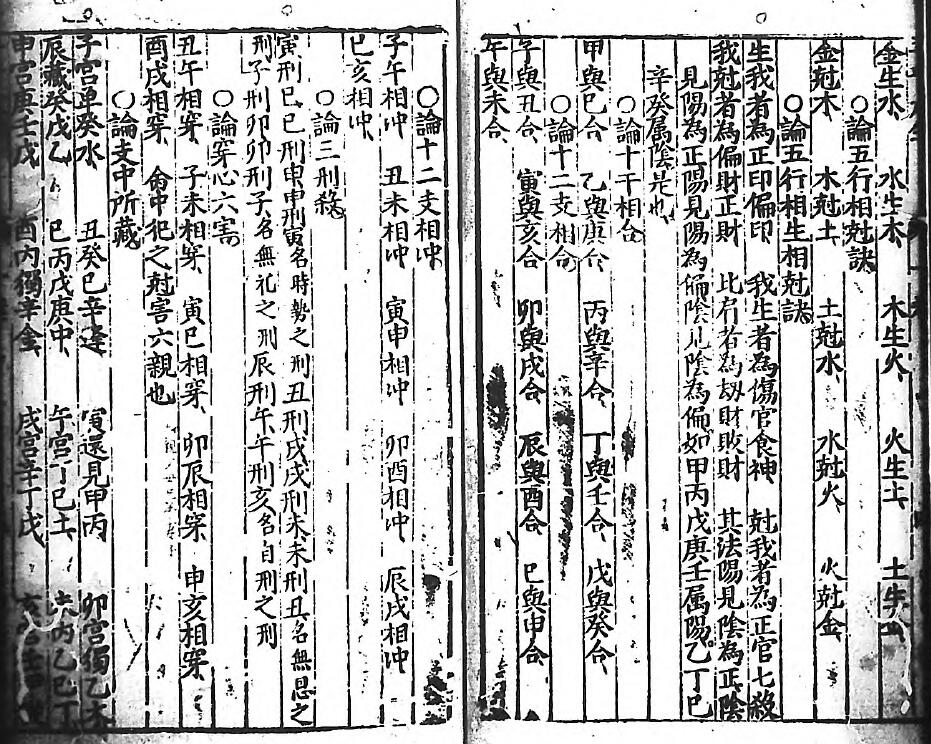 金生水 水生木 木生火 火生土 土生金
○論五行相尅訣
金尅木 木尅土 土尅水 水尅火 火尅金
○論五行相生相尅訣
生我者為正印偏印 我生者為傷官食神 尅我者為正官七殺
我尅者為偏財正財 比肩者為刼財敗財 其法陽見陰為正陰
見陽為正陽見陽為偏陰見陰為偏如甲丙戊庚壬属陽乙丁巳
辛癸属陰是也
○論十干相合
甲與巳合 乙與庚合 丙與辛合 丁與壬合 戊與癸合
○論十二支相合
子與丑合 寅與亥合 卯與戌合 辰與酉合 巳與申合
午與未合
○論十二支相冲
子午相冲 丑未相冲 寅申相冲 卯酉相冲 辰戌相冲
巳亥相冲
○論三刑殺
寅刑巳巳刑申申刑寅名時勢之刑丑刑戌戌刑未未刑丑名無恩之
刑子刑卯卯刑子名無礼之刑辰刑午午刑亥名自刑之刑
○論穿心六害
丑午相穿 子未相穿 寅巳相穿 卯辰相穿 申亥相穿
酉戌相穿 命中犯之尅害六親也
○論支中所藏
子宮单癸水 丑癸巳辛逢 寅還見甲丙 卯宮獨乙木
辰藏癸戊乙 巳丙戊庚中 午宮丁巳土 乙巳丁
申宮庚壬戊 酉内獨辛金 戌宮辛丁戊 亥